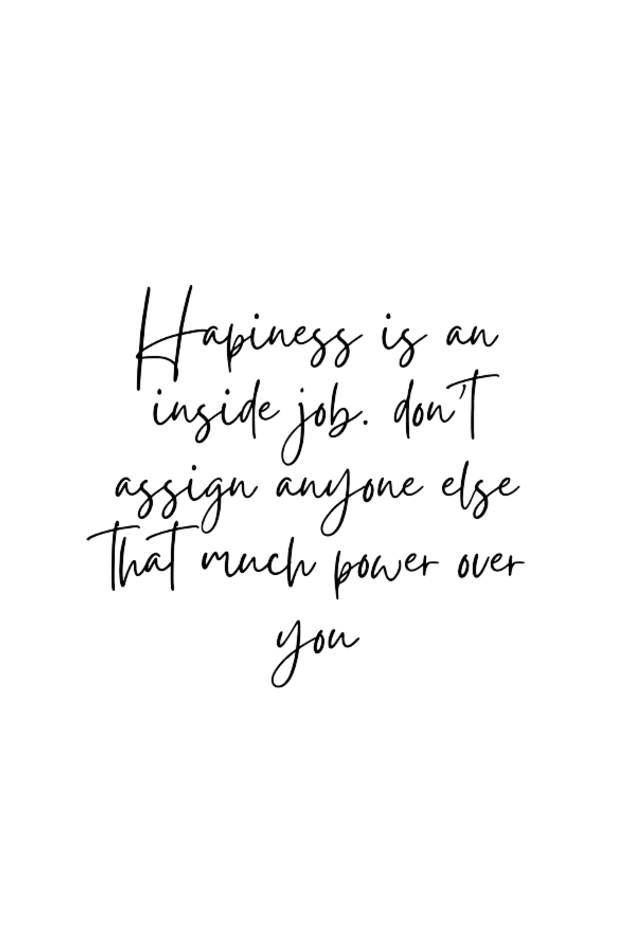 Hapiness is an
inside job. don't
assign anyone else
that much power over
you